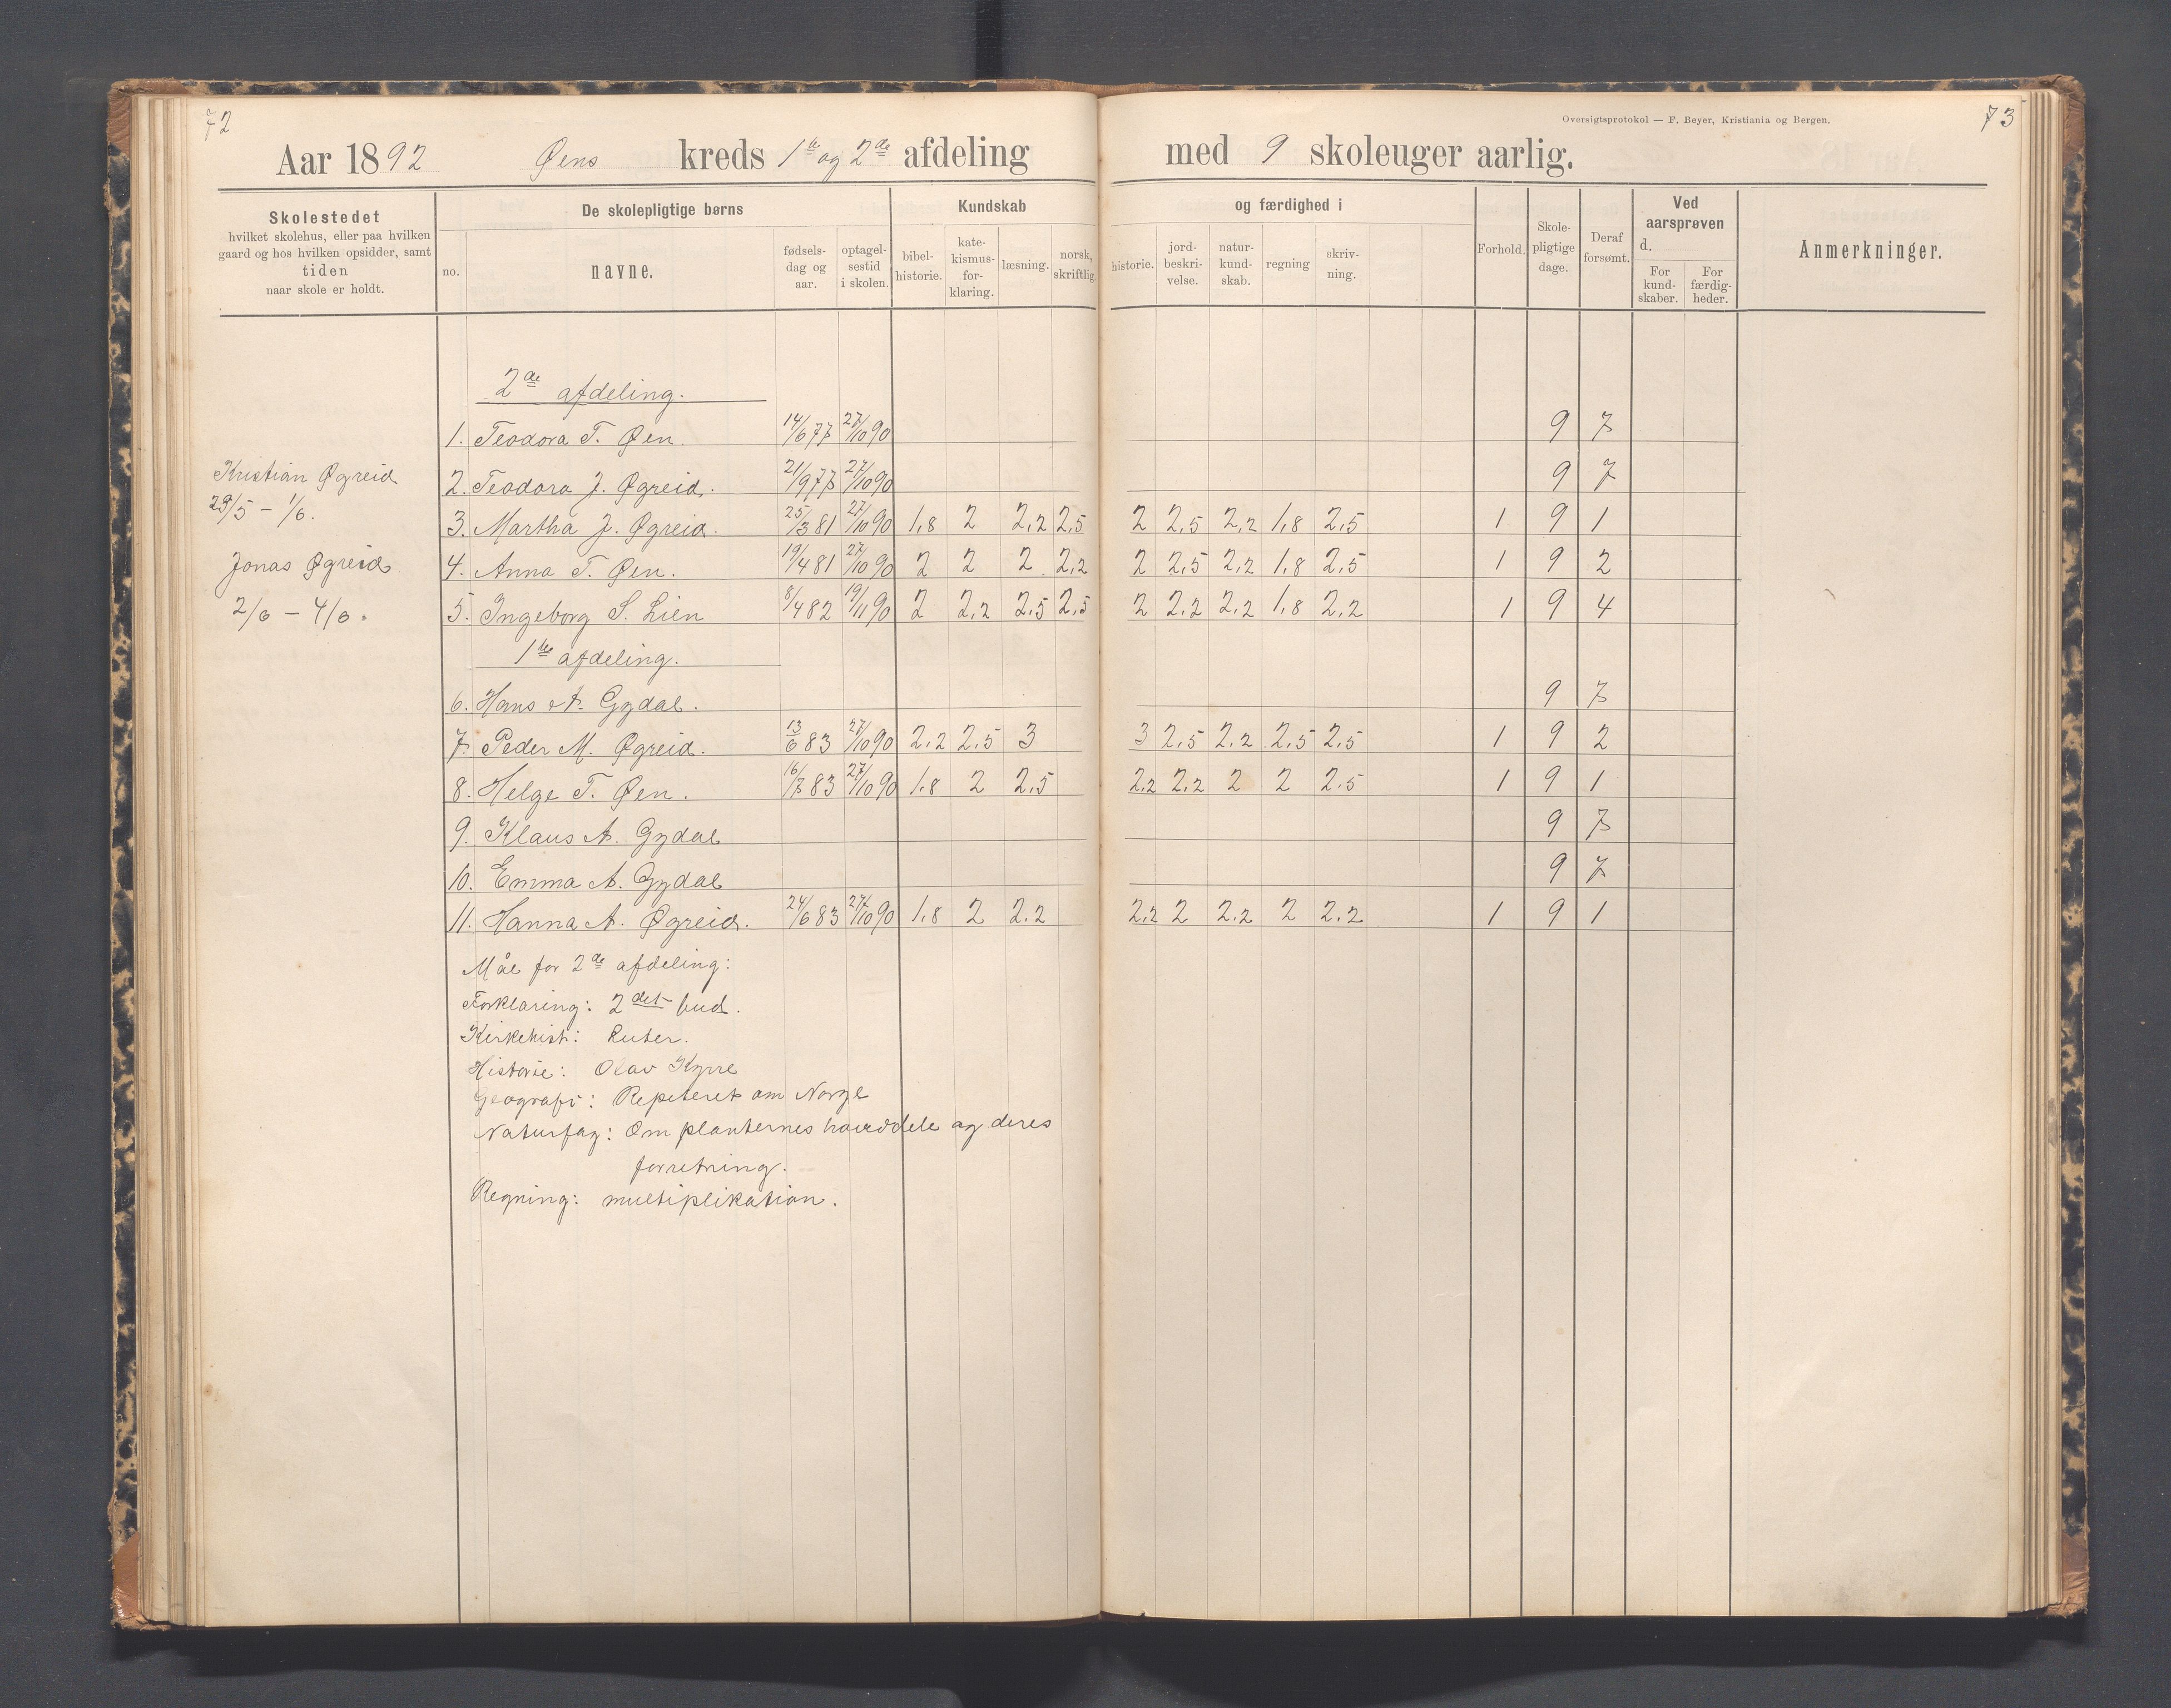 72
73
Oversigtsprotokol — F. Beyer, Kristiania og Bergen.
Aar 1892 Øens kreds 1ste og 2den afdeling med 9 skoleuger aarlig.
Skolestedet
hvilket skolehus, eller paa hvilken
gaard og hos hvilken opsidder, samt
tiden
naar skole er holdt.
De skolepligtige børns
no.
navne.
fødsels-
dag og
aar.
optagel-
sestid
i skolen.
Kundskab og færdighed i
bibel-
historie.
kate-
kismus-
for-
klaring.
læsning.
norsk,
skriftlig.
historie.
jord-
beskri-
velse.
natur-
kund-
skab.
regning
skriv-
ning.
Forhold.
Skole-
pligtige
dage.
Deraf
forsømt.
Ved
aarsprøven
d.
For
kund-
skaber.
For
færdig-
heder.
Anmerkninger.
2de afdeling.
1. Teodora T. Øen. 14/6 77 27/10 90 9 7
Kristian Øgreid
2. Teodora J. Øgreid. 21/9 77 27/10 90 9 7
29/5 – 1/6.
3. Martha J. Øgreid. 25/3 81 27/10 90 1,8 2 2,2 2,5 2 2,5 2,2 1,8 2,5 1 9 1
Jonas Øgreid
4. Anna T. Øen. 19/4 81 27/10 90 2 2 2 2,2 2 2,5 2,2 1,8 2,5 1 9 2
2/6 – 4/6.
5. Ingeborg S. Lien 8/4 82 19/11 90 2 2,2 2,5 2,5 2 2,2 2,2 1,8 2,2 1 9 4
1ste afdeling.
6. Hans A. Gydal. 9 7
7. Peder M. Øgreid. 13/6 83 27/10 90 2,2 2,5 3 3 2,5 2,2 2,5 2,5 1 9 2
8. Helge T. Øen. 16/7 83 27/10 90 1,8 2 2,5 2,2 2,2 2 2 2,5 1 9 1
9. Klaus A. Gydal 9 7
10. Emma A. Gydal 9 7
11. Hanna A. Øgreid. 24/6 83 27/10 90 1,8 2 2,2 2,2 2 2,2 2 2,2 1 9 1
Mål for 2de afdeling:
Forklaring: 2det bud.
Kirkehist: Luter.
Historie: Olav Kyrre
Geografi: Repeteret om Norge
Naturfag: Om planternes hoveddele og deres
forretning.
Regning: multiplikation.